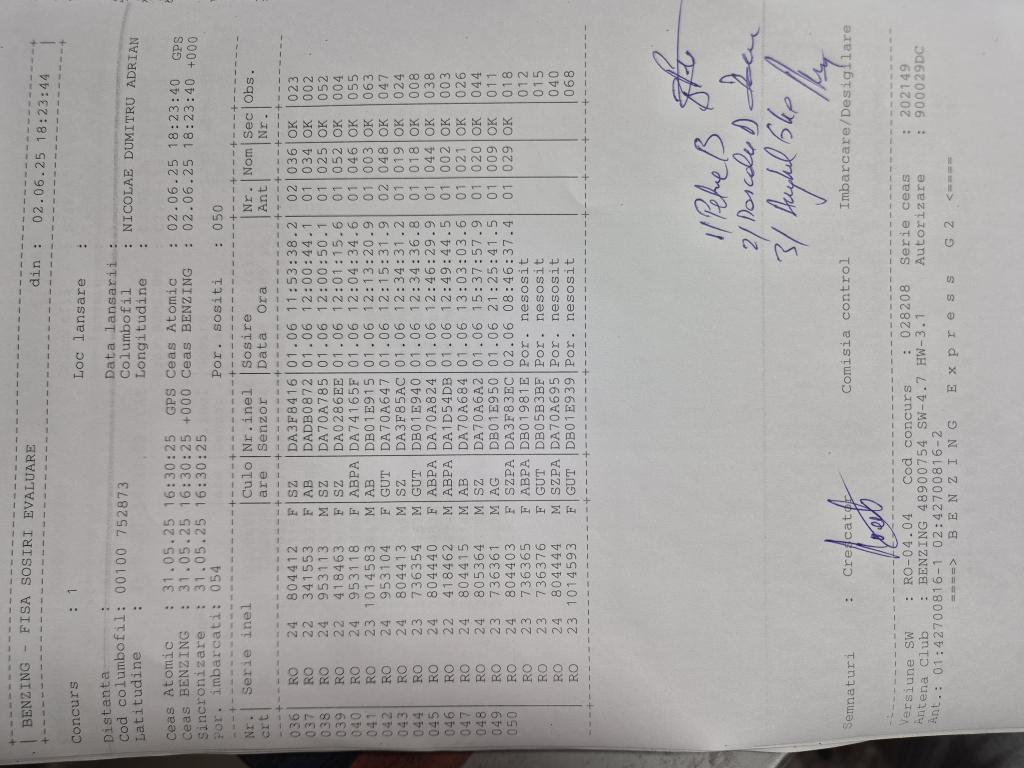 | BENZING - FISA SOSIRI EVALUARE din : 02.06.25 18:23:44 |
Concurs : 1 Loc lansare :
Distanta : Data lansarii :
Cod columbofil: 00100 752873 Columbofil : NICOLAE DUMITRU ADRIAN
Latitudine : Longitudine :
Ceas Atomic : 31.05.25 16:30:25 GPS Ceas Atomic : 02.06.25 18:23:40 GPS
Ceas BENZING : 31.05.25 16:30:25 +000 Ceas BENZING : 02.06.25 18:23:40 +000
Sincronizare : 31.05.25 16:30:25
Por. imbarcati: 054 Por. sositi : 050
Nr.| Serie inel |Culo|Nr.inel |Sosire |Nr. |Nom|sec|Obs.
crt| |are |Senzor |Data Ora |Ant| |Nr.|
036| RO 24 804412 F |SZ |DA3F8446|01.06 11:53:38.2| 02 |036|OK |023
037| RO 22 341553 F |AB |DADB0872|01.06 12:00:44.1| 01 |034|OK |002
038| RO 24 953113 M |SZ |DA70A785|01.06 12:00:50.1| 01 |025|OK |052
039| RO 22 418463 F |SZ |DA0286EE|01.06 12:01:15.6| 01 |052|OK |004
040| RO 24 953118 F |ABPA|DA74165F|01.06 12:04:34.6| 01 |046|OK |055
041| RO 23 1014583 M |AB |DB01E915|01.06 12:13:20.9| 01 |003|OK |063
042| RO 24 953104 F |GUT |DA70A647|01.06 12:15:31.9| 02 |048|OK |047
043| RO 24 804413 M |SZ |DA3F85AC|01.06 12:34:31.2| 01 |019|OK |024
044| RO 23 736354 M |GUT |DB01E940|01.06 12:34:36.8| 01 |018|OK |008
045| RO 24 804440 F |ABPA|DA70A824|01.06 12:46:29.9| 01 |044|OK |038
046| RO 22 418462 M |ABPA|DA1D54DB|01.06 12:49:44.5| 01 |002|OK |003
047| RO 24 804415 M |AB |DA70A684|01.06 13:03:03.6| 01 |021|OK |026
048| RO 24 805364 M |SZ |DA70A6A2|01.06 15:37:57.9| 01 |020|OK |044
049| RO 23 736361 M |AG |DB01E950|01.06 21:25:41.5| 01 |009|OK |011
050| RO 24 804403 M |SZPA|DA3F83EC|02.06 08:46:37.4| 01 |029|OK |018
RO 23 736365 F |ABPA|DB01981E|Por. nesosit |012
RO 23 736376 F |GUT |DB05B3BF|Por. nesosit |015
RO 24 804444 M |SZPA|DA70A695|Por. nesosit |040
RO 23 1014593 F |GUT |DB01E939|Por. nesosit |068
1) Petre B
2) D
3)
Semnaturi : Crescator Comisia control Imbarcare/Desigilare
Versiune SW : RO-04.04 Cod concurs : 028208 Serie ceas : 202149
Antena Club : BENZING 48900754 SW-4.7 HW-3.1 Autorizare : 900029DC
Ant.: 01:42700816-1 02:42700816-2
====> B E N Z I N G E x p r e s s G 2 <====